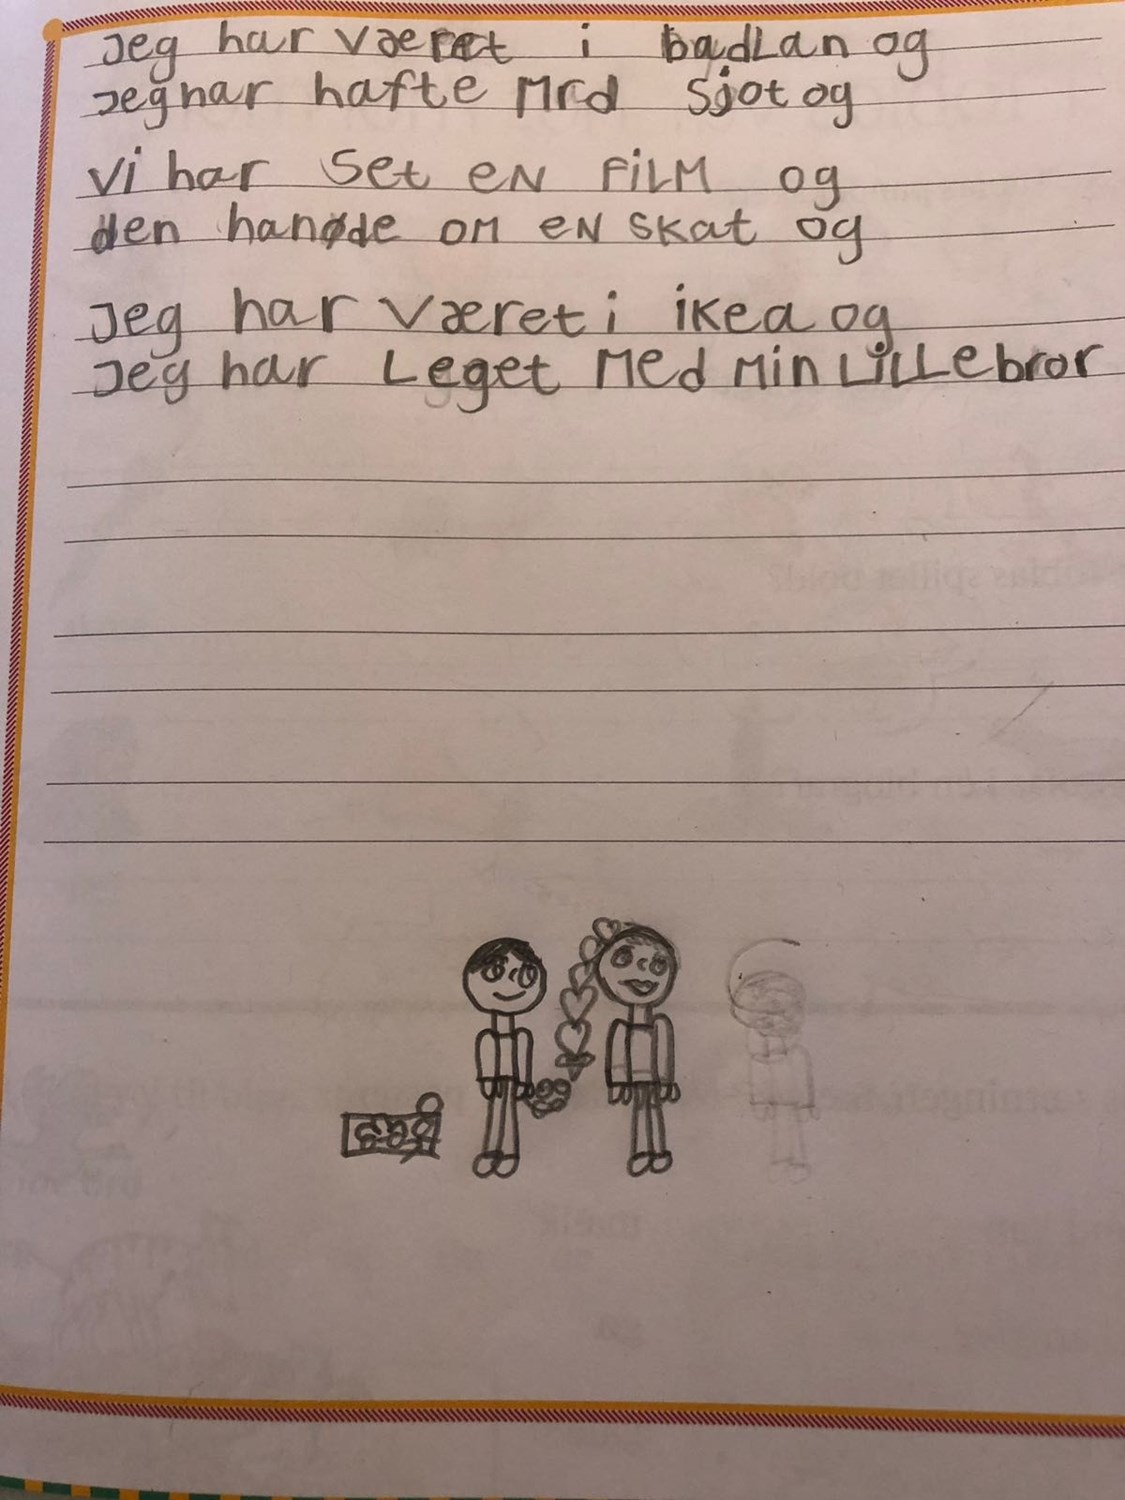 Jeg har været i badLan og
Jeg har hafte Mrd sjot og
Vi har Set eN FiLM og
den hanøde OM eN skat og
Jeg har Været i ikea og
Jeg har Leget Med Min LiLLebror